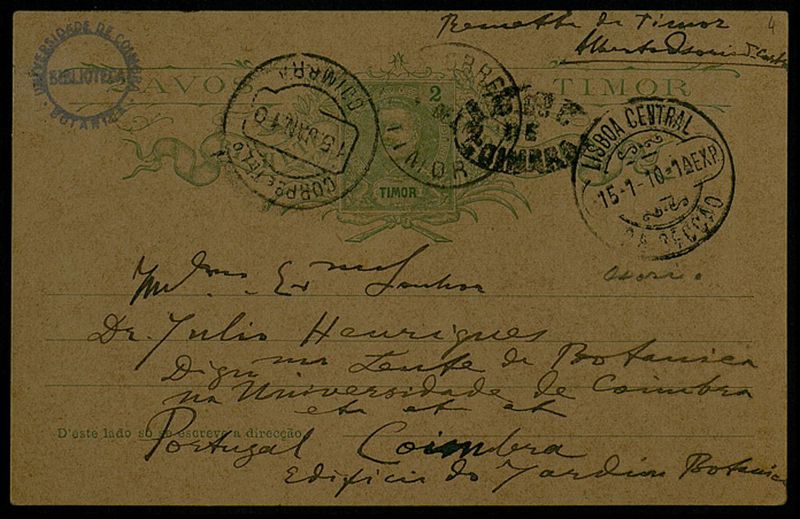 Remette de Timor
Alberto Osorio de Castro
4
UNIVERSIDADE DE COIMBRA
BIBLIOTECA
BOTANICA
AVOS
TIMOR
2
TIMOR
CORRº E TELº
15 JAN 10
COIMBRA
CORREIO
TIMOR
COIMBRA
LISBOA CENTRAL
15-1-10-1ΔEXP.
SECÇÃO
Osorio.
Illmo Exmo Senhor
Dr. Julio Henriques
Digmo Lente de Botanica
na Universidade de Coimbra
etc etc etc
D'este lado só se escreve a direcção
Portugal Coimbra
Edificio do Jardim Botanico